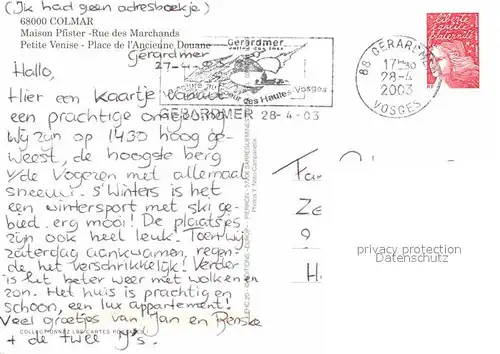 (Ik had geen adresboekje)
68000 COLMAR
Maison Pfister - Rue des Marchands
Petite Venise - Place de l'Ancienne Douane
Gerardmer
27-4-
Hallo,
Hier een kaartje vanuit
een prachtige omgeving
Wij zijn op 1430 hoog ge-
weest, de hoogste berg
v/de Vogezen met allemaal
sneeuw. s' Winters is het
een wintersport met ski ge-
bied. erg mooi! De plaatsjes
zijn ook heel leuk. Toen wij
zaterdag aankwamen, regen-
de het verschrikkelijk! Verder
is het beter weer met wolken en
zon. Het huis is prachtig en
schoon, een lux appartement!
Veel groetjes van Jan en Renske
+ de twee
COLLECTIONNEZ LES CARTES POSTALES
Gérardmer
des Hautes Vosges
GERARDMER 28-4-03
88 GERARDMER
17H30
28-4
2003
VOSGES
liberté
égalité
fraternité
Fam
Ze
9
H
privacy protection
Datenschutz